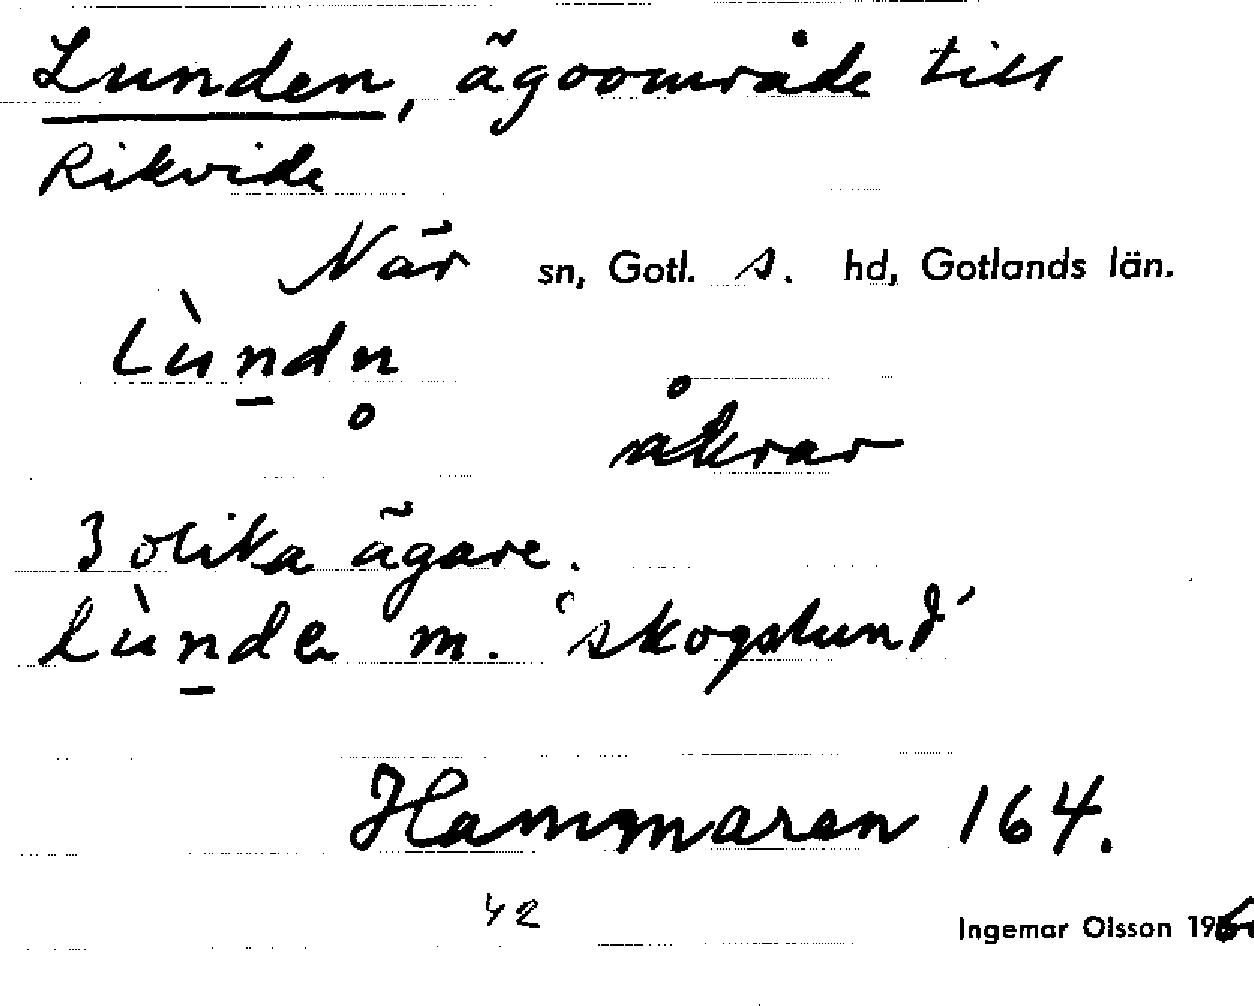 Lunden, ägoområde till
Rikvide
När sn, Gotl. s. hd, Gotlands län.
Lùn̲dn̥
åkrar
3 olika ägare.
lùn̲da m. 'skogslund'
Hammaren 164.
42
Ingemar Olsson 196